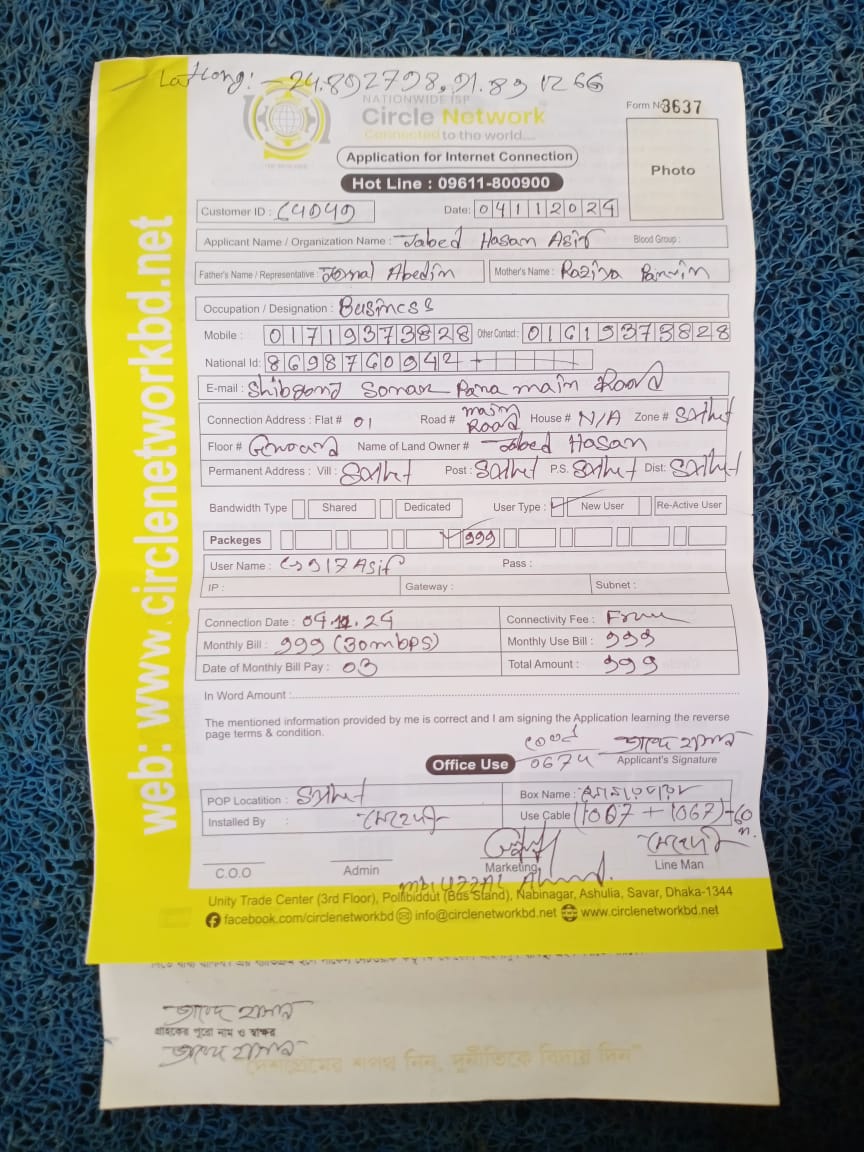 Lat Long: - 24.892798, 91.891266
NATIONWIDE ISP
Circle Network
Connected to the world....
Form No 3637
Application for Internet Connection
Photo
Hot Line : 09611-800900
Customer ID : C4949 Date: 04112024
Applicant Name / Organization Name : Jabed Hasan Asif Blood Group :
Father's Name / Representative : Jomal Abedin Mother's Name : Raziya Parvin
Occupation / Designation : Business
Mobile : 01719373828 Other Contact : 01619373828
National Id: 8698760942
E-mail : Shibgonj Sonar Para main Road
Connection Address : Flat # 01 Road # main Road House # N/A Zone # Sylhet
Floor # Ground Name of Land Owner # Jabed Hasan
Permanent Address : Vill : Sylhet Post : Sylhet P.S. Sylhet Dist: Sylhet
Bandwidth Type Shared Dedicated User Type : New User Re-Active User
Packeges 999
User Name : Pass :
IP : Gateway : Subnet :
Connection Date : 04.11.24 Connectivity Fee : Free
Monthly Bill : 999 (30mbps) Monthly Use Bill : 999
Date of Monthly Bill Pay : 03 Total Amount : 999
In Word Amount :
The mentioned information provided by me is correct and I am signing the Application learning the reverse
page terms & condition.
জাবেদ হাসান
Office Use Applicant's Signature
POP Locatition : Sylhet Box Name :
Installed By : মেহেদী Use Cable (1007 + 1067)=60 m.
মেহেদী
C.O.O Admin Marketing Line Man
Unity Trade Center (3rd Floor), Pollibiddut (Bus Stand), Nabinagar, Ashulia, Savar, Dhaka-1344
facebook.com/circlenetworkbd info@circlenetworkbd.net www.circlenetworkbd.net
web: www.circlenetworkbd.net
জাবেদ হাসান
গ্রাহকের পুরো নাম ও স্বাক্ষর
জাবেদ হাসান
"দেশপ্রেমের শপথ নিন, দুর্নীতিকে বিদায় দিন"